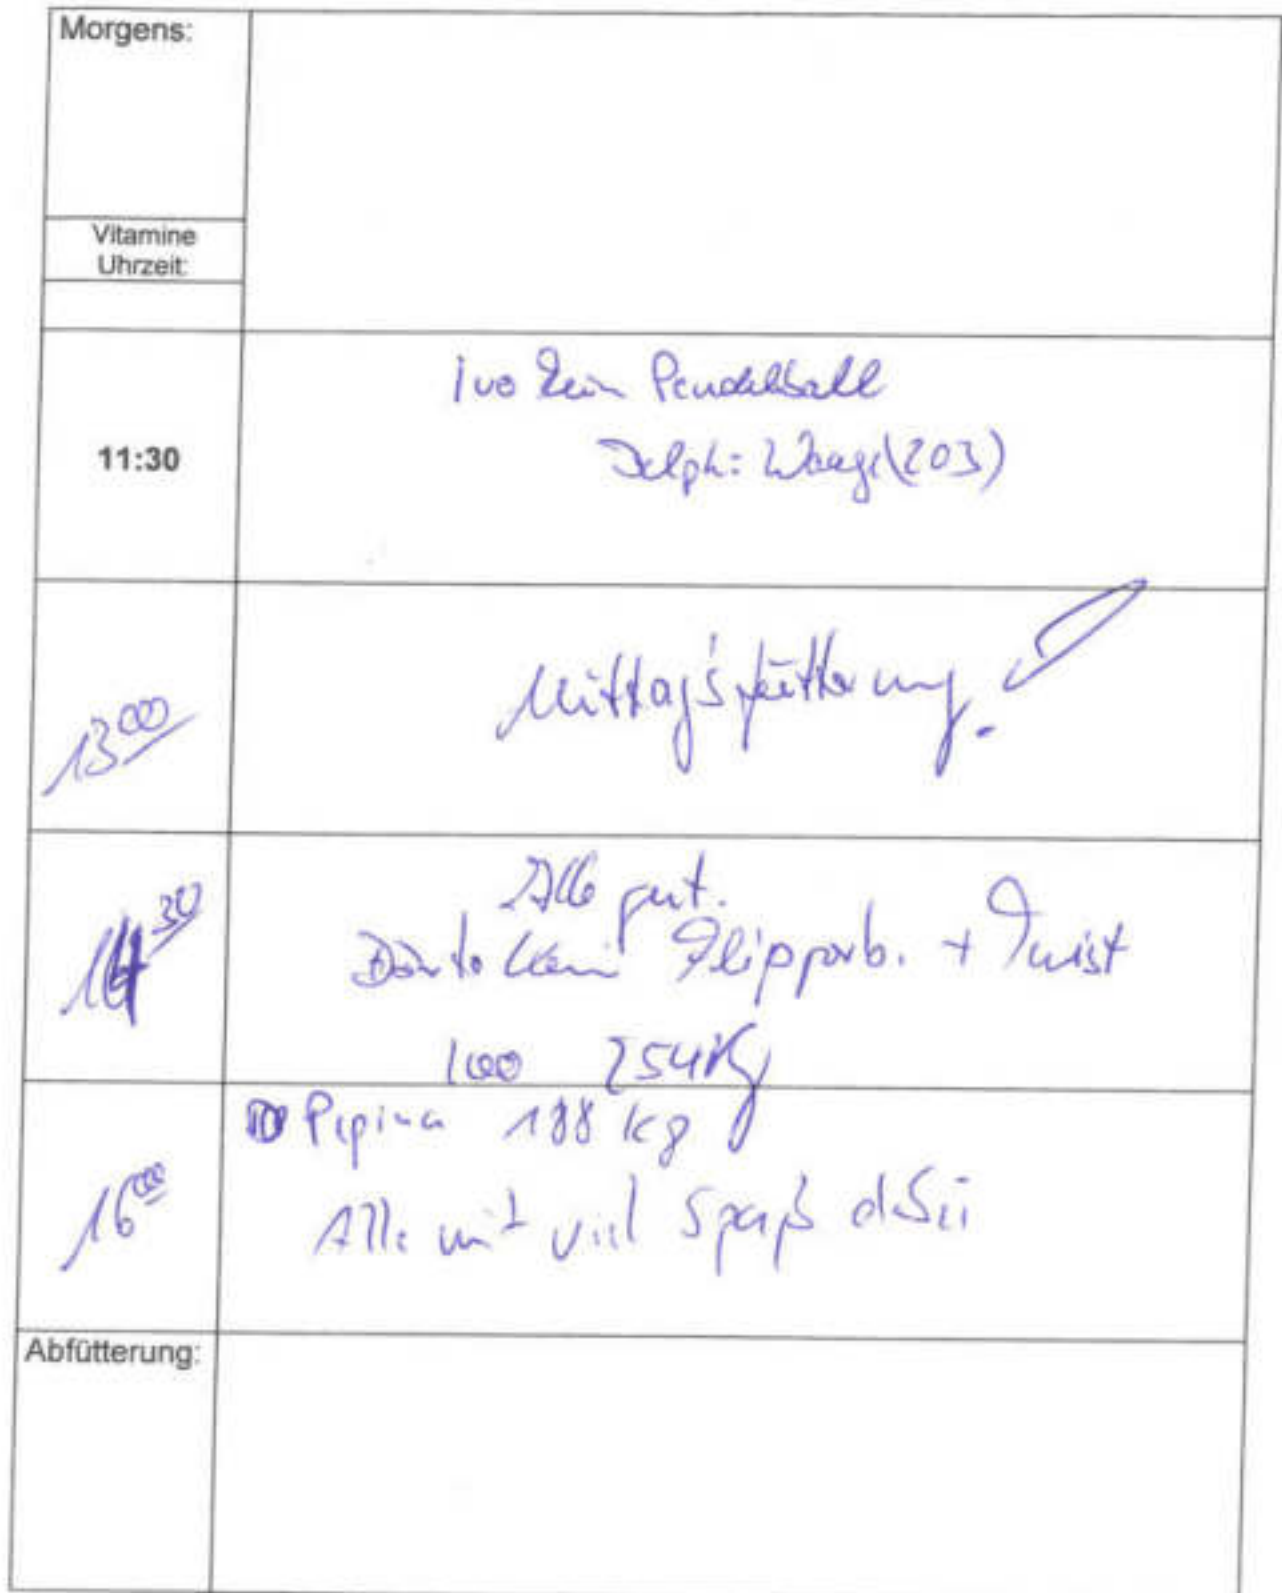 Morgens:
Vitamine
Uhrzeit:
Ivo kein Pendelball
11:30
Delphi Waage (203)
Mittag's fütterung!
13 00
Alle gut.
14 30
Dörte kein Flipperb. + Twist
Ivo 254 Kg
Pepina 188 kg
16 00
Alle mit viel Spaß dabei
Abfütterung: